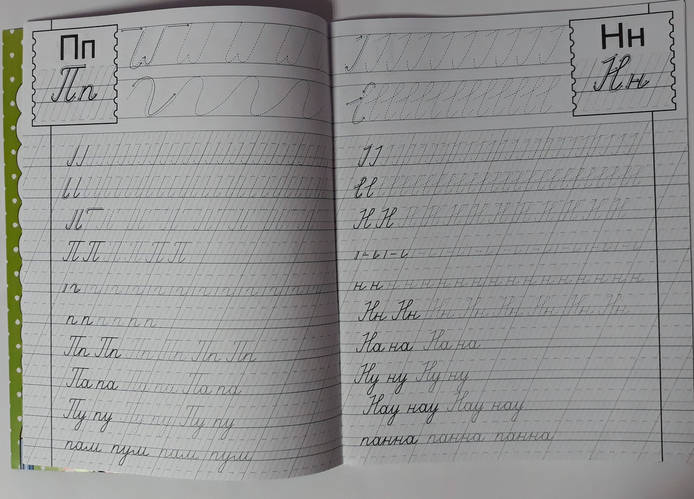 Пп
Пп
П П П П
п п п п п
Пп Пп Пп Пп Пп Пп
Па па Па па Па па
Пу пу Пу пу Пу пу
пам пум пам пум
Нн
Нн
Н Н
н н
Нн Нн Нн Нн Нн Нн Нн
На на На на
Ну ну Ну ну
Нау нау Нау нау
панна панна панна